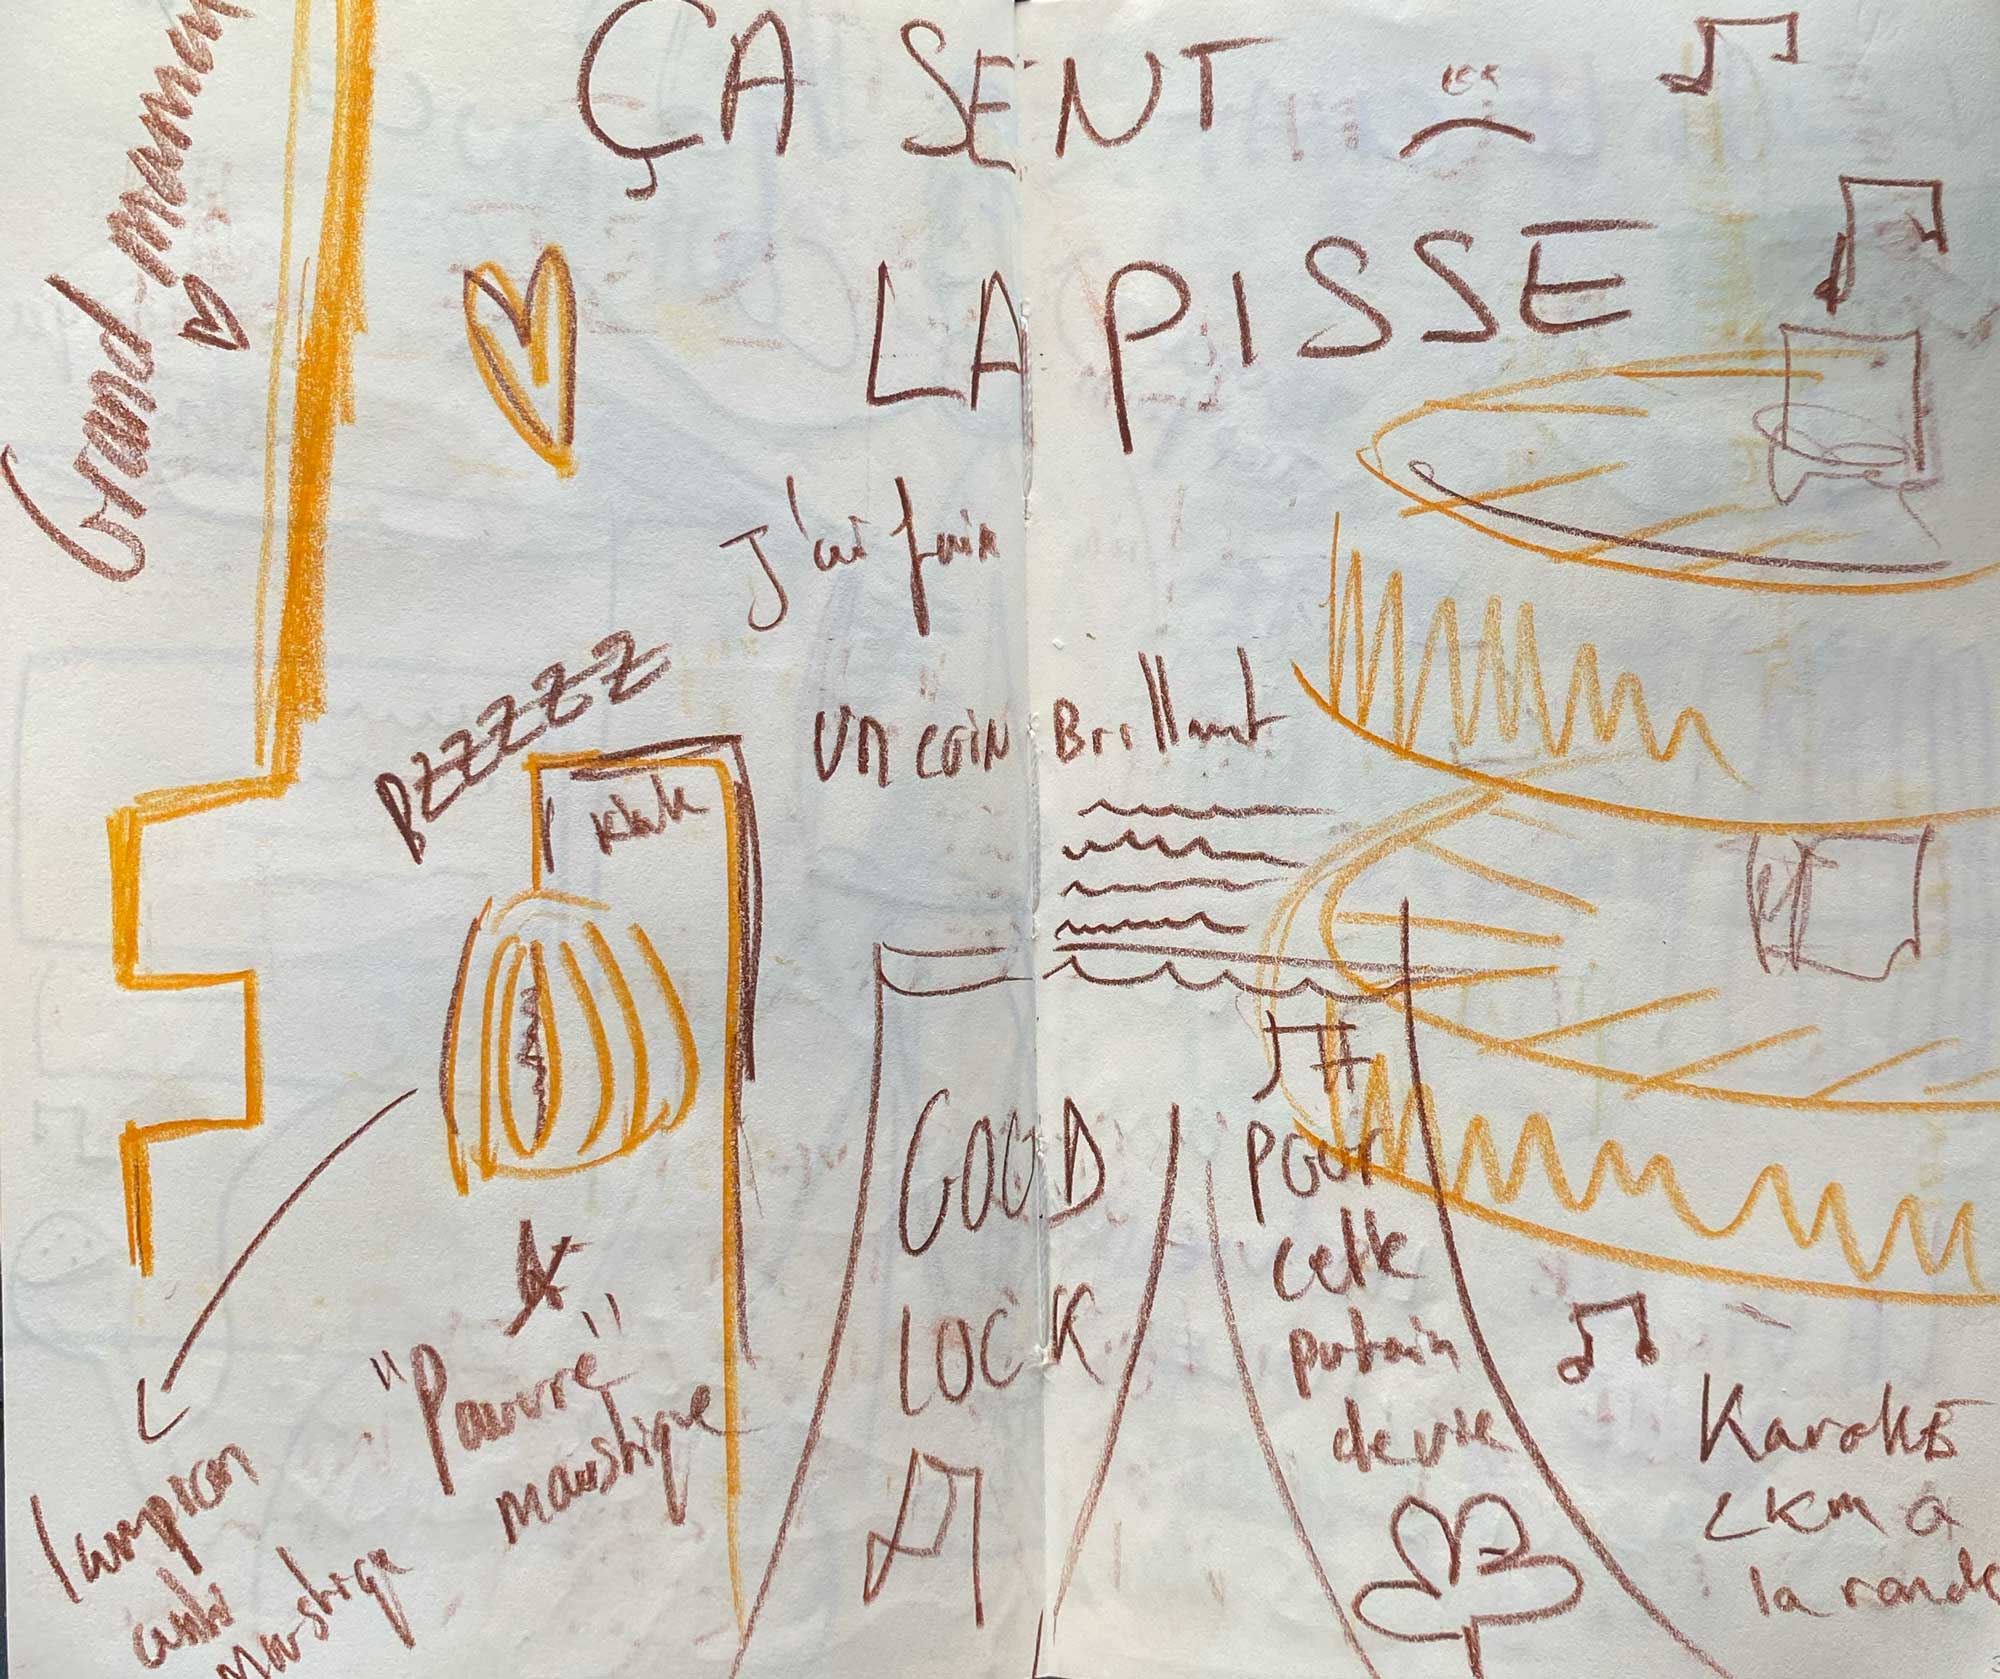 Grand-maman
ÇA SENT
LA PISSE
J'ai faim
UN COIN Brillant
BZZZZZ
GOOD
LOCK
pour
cette
putain
de vie
"Pauvre"
moustique
lampion
anti
moustique
KaraokÉ
2 km a
la ronde